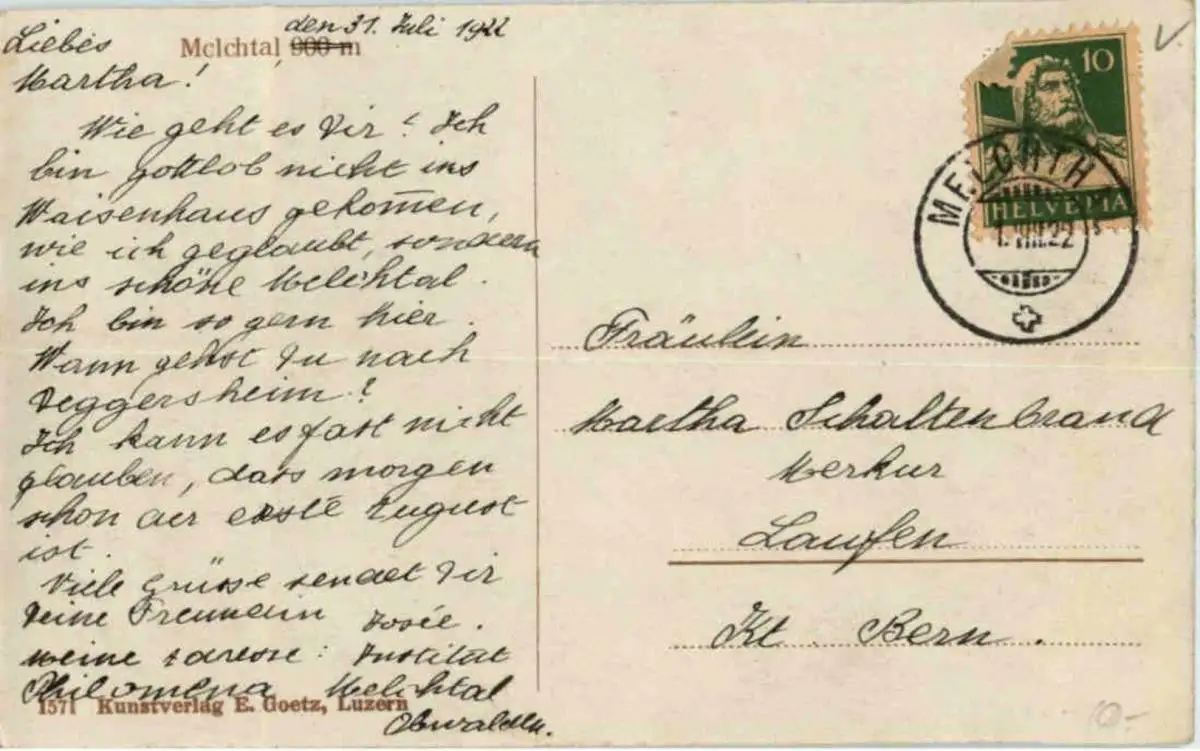 Melchtal 900 m
den 31. Juli 1922
Liebes
Martha!
Wie geht es Dir? Ich
bin gottlob nicht ins
Waisenhaus gekom̄en,
wie ich geglaubt, sondern
ins schöne Melchtal.
Ich bin so gern hier.
Wann gehst Du nach
Deggersheim?
Ich kann es fast nicht
glauben, dass morgen
schon der erste August
ist.
Viele Grüsse sendet Dir
Deine Freundin Josée.
Meine Adresse: Institut
Philomena Melchtal
Obwalden.
1571 Kunstverlag E. Goetz, Luzern
10
HELVETIA
MELCHTH
1.VIII.22
Fräulein
Martha Schaltenbrand
Merkur
Laufen
Kt. Bern.
10.-